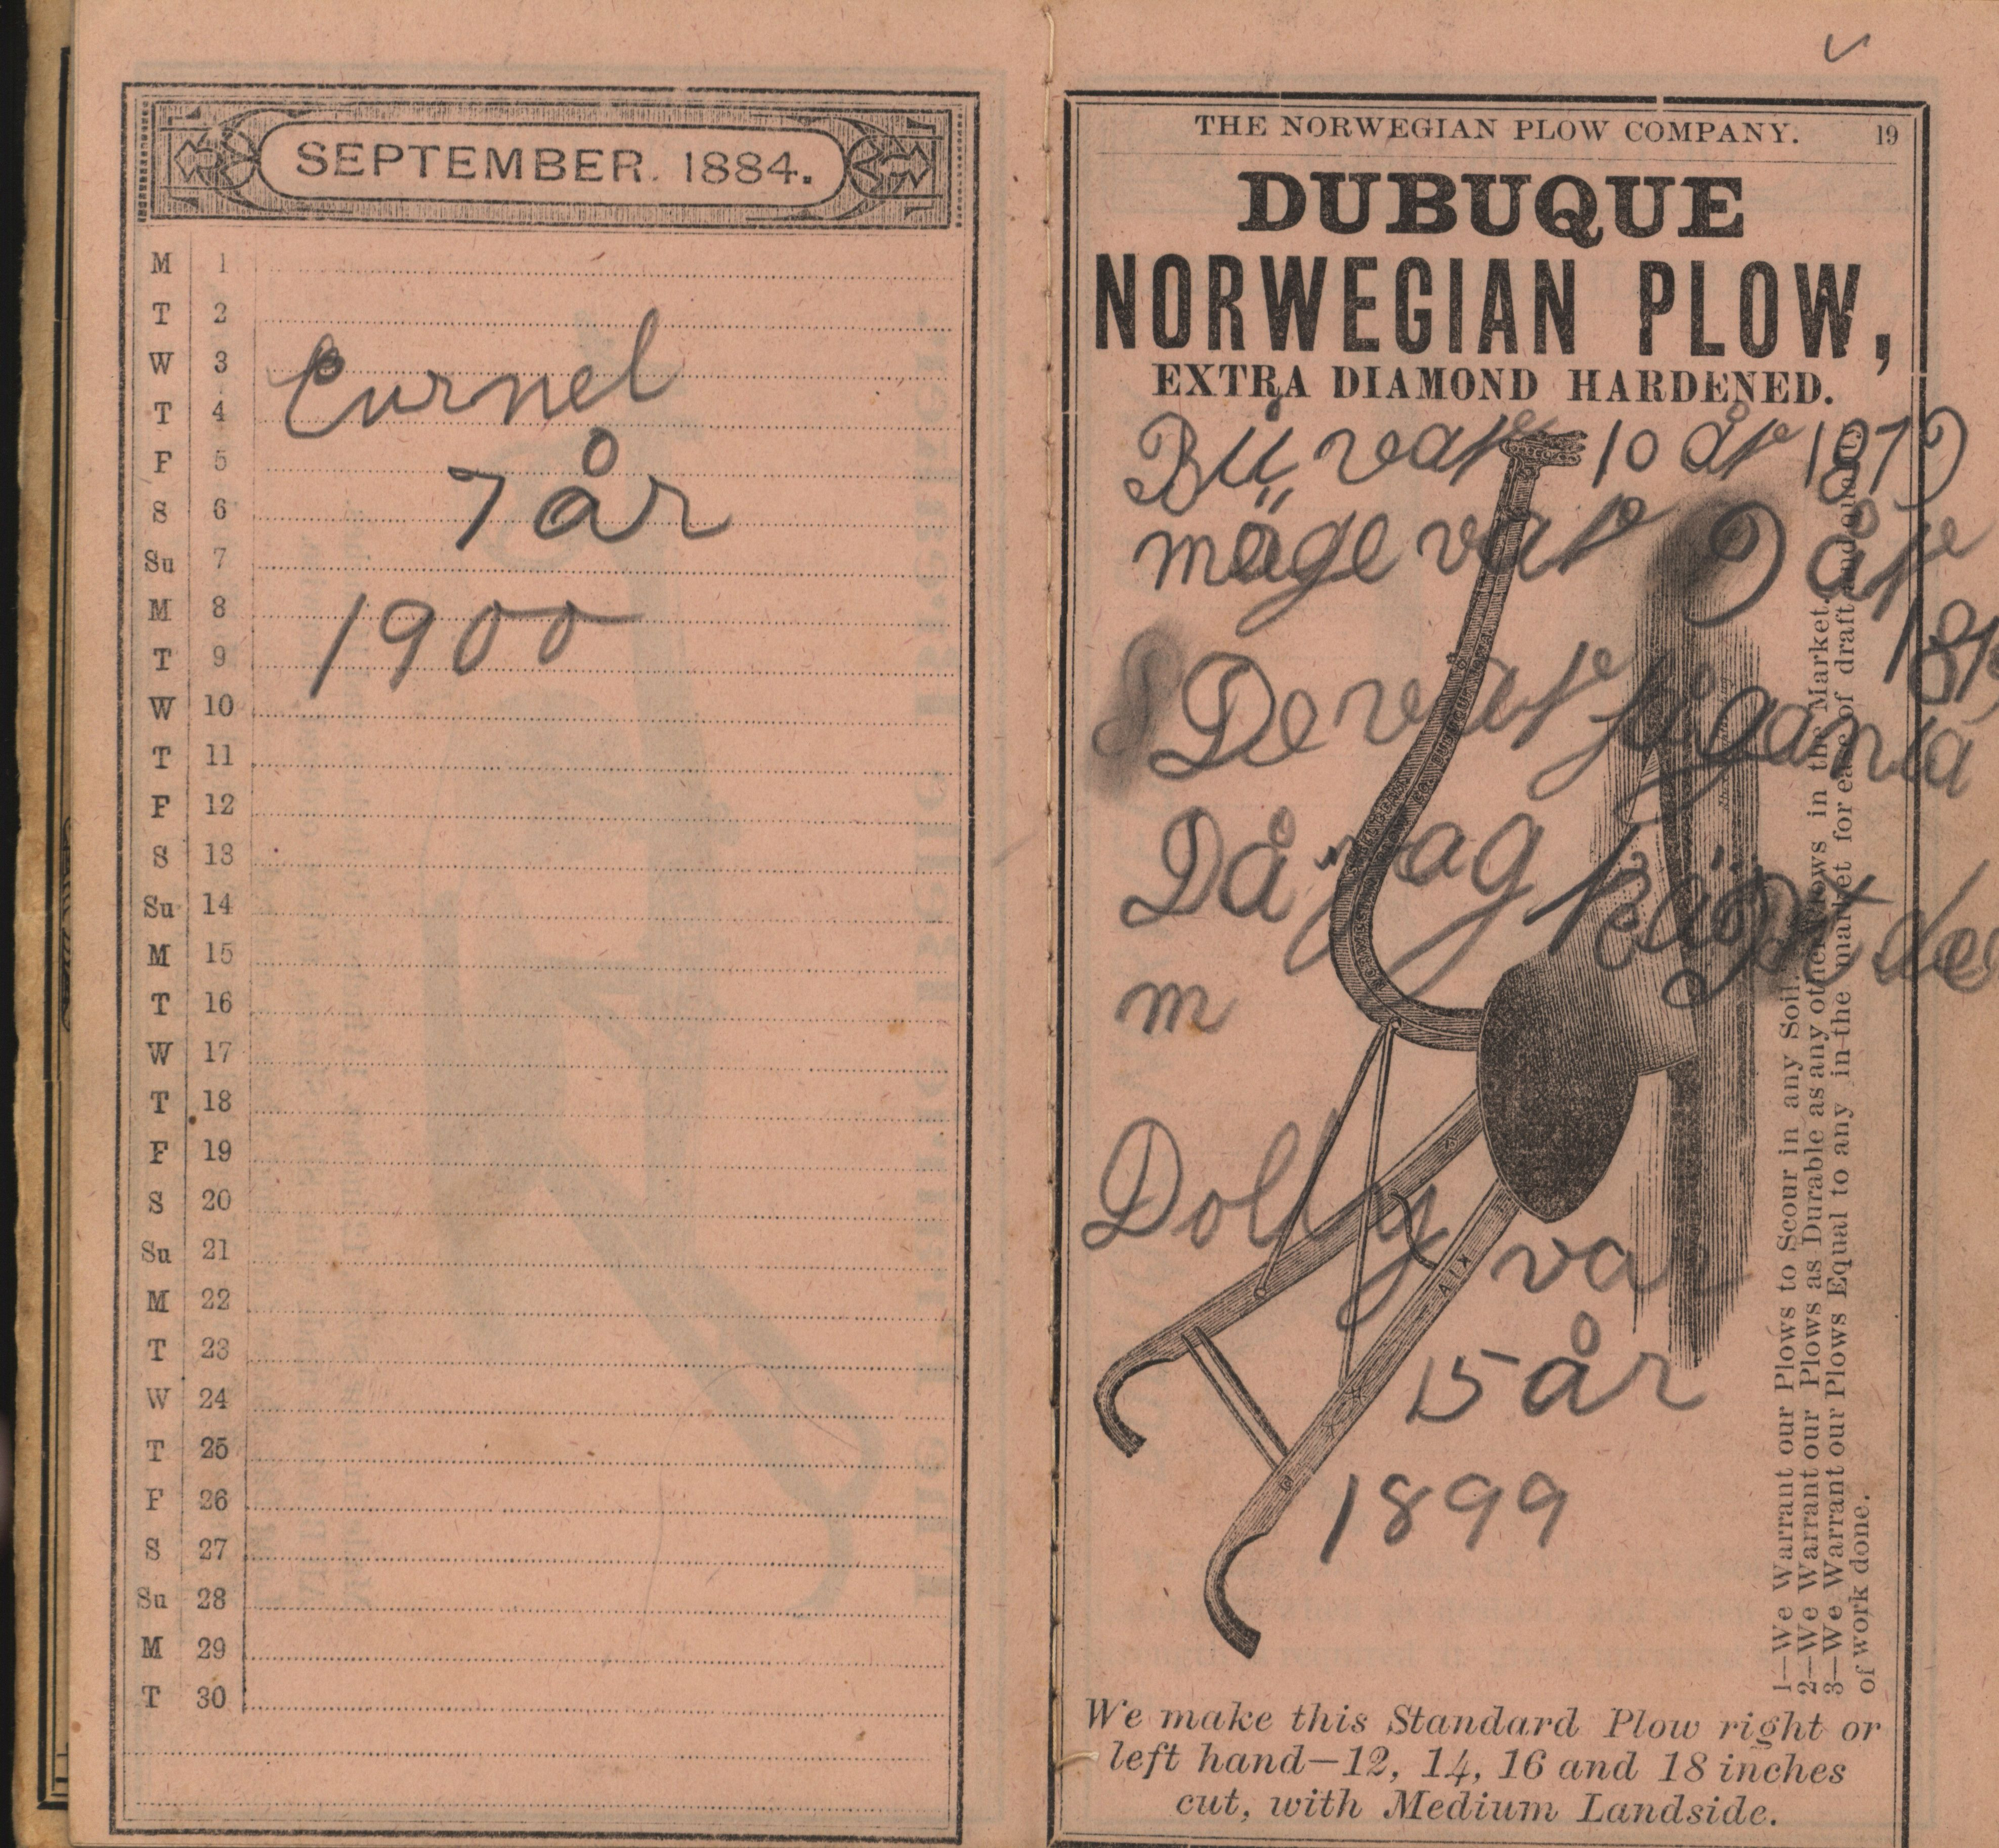 SEPTEMBER. 1884.
M 1
T 2
W 3
T 4
F 5
S 6
Su 7
M 8
T 9
W 10
T 11
F 12
S 13
Su 14
M 15
T 16
W 17
T 18
F 19
S 20
Su 21
M 22
T 23
W 24
T 25
F 26
S 27
Su 28
M 29
T 30
Curnel
7 år
1900
THE NORWEGIAN PLOW COMPANY. 19
DUBUQUE
NORWEGIAN PLOW,
EXTRA DIAMOND HARDENED.
var 10 år 1879
mäge var 9 år
De var
Då jag de
m
Dolly var
15 år
1899
1—We Warrant our Plows to Scour in any Soil.
2—We Warrant our Plows as Durable as any other Plows in the Market.
3—We Warrant our Plows Equal to any in the market for ease of draft and quality
of work done.
We make this Standard Plow right or
left hand—12, 14, 16 and 18 inches
cut, with Medium Landside.